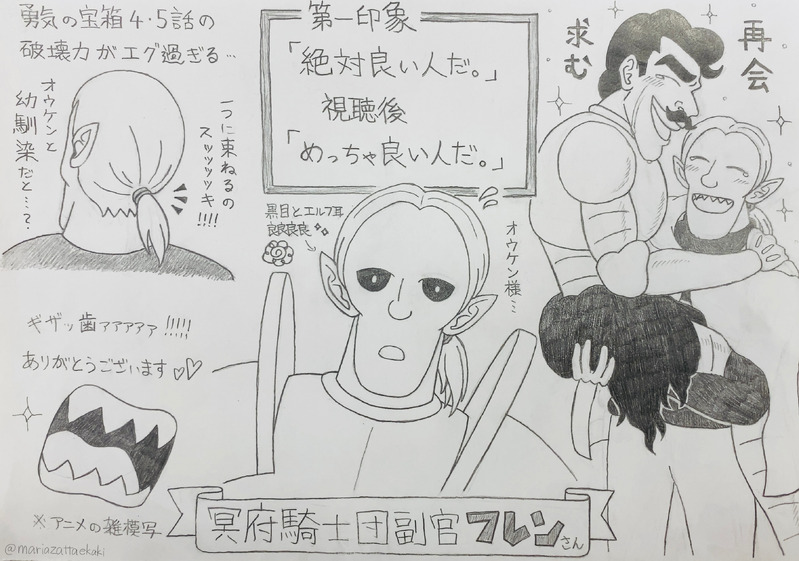 勇気の宝箱4・5話の
破壊力がエグ過ぎる…
オウケンと
幼馴染だと…?
一つに束ねるの
スッッッッキ
!!!!
第一印象
「絶対良い人だ。」
視聴後
「めっちゃ良い人だ。」
再会
求む
黒目とエルフ耳
良良良良
オウケン様…
ギザッ歯ァァァァァ!!!!!
ありがとうございます♡♡
※アニメの雑模写
冥府騎士団副官フレンさん
@mariazattaekaki